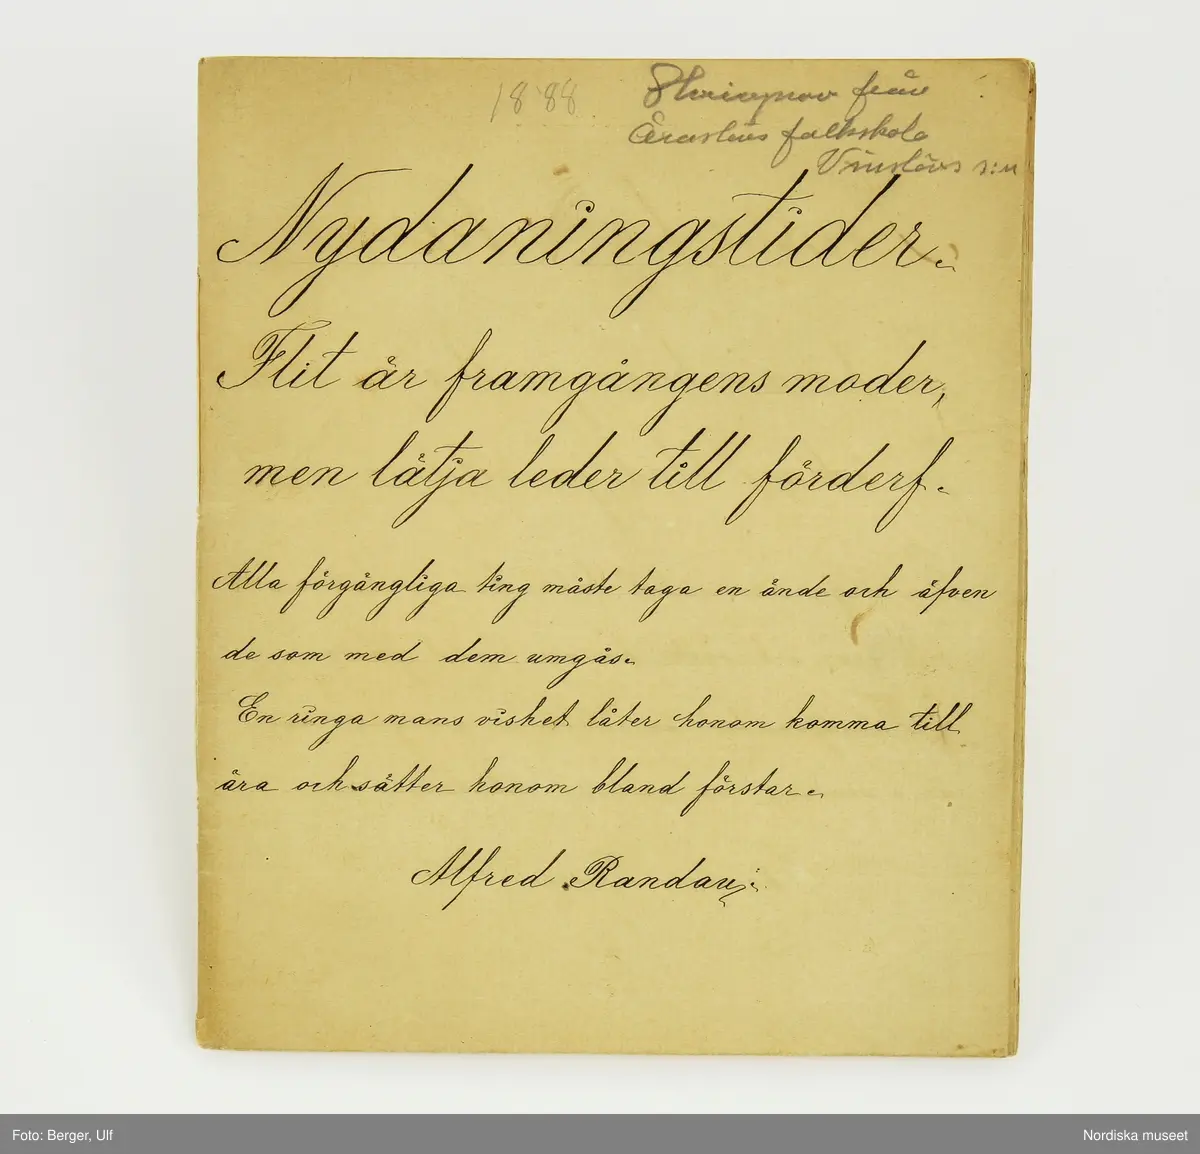 1888
Skrifprov från
Araslövs folkskola
Vinslövs s:n
Nydaningstider.
Flit är framgångens moder,
men lätja leder till förderf.
Alla förgängliga ting måste taga en ände och äfven
de som med dem umgås.
En ringa mans vishet låter honom komma till
ära och sätter honom bland förstar.
Alfred Randau.
Foto: Berger, Ulf
Nordiska museet